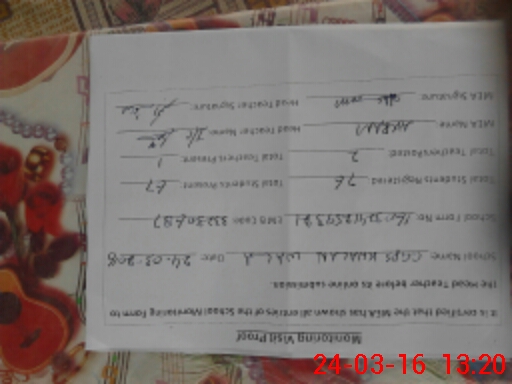 Monitoring Visit Proof
It is certified that the MEA has shown all entries of the School Monitoring Form to
the Head Teacher before its online submission.
School Name: GGPS KHALAN WALA Date: 24-03-
School Form No: EMIS Code: 33230687
Total Students Registered: 76 Total Students Present: 67
Total Teachers Posted: 2 Total Teachers Present: 1
MEA Name: AKRAM Head Teacher Name:
MEA Signature: Head Teacher Signature:
24-03-16 13:20